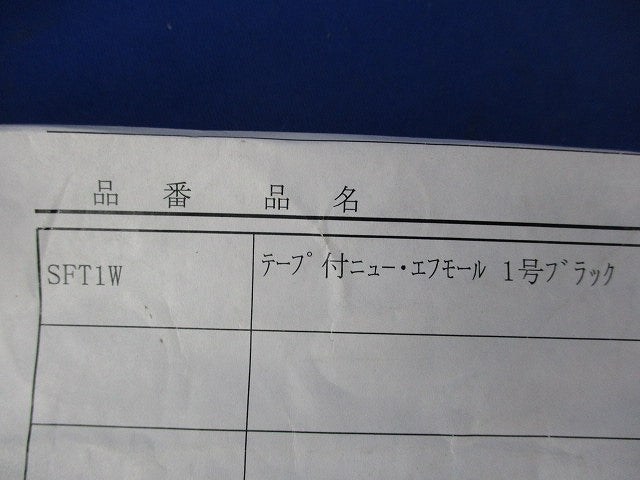 品　番　品　名
SFT1W　ﾃｰﾌﾟ付ﾆｭｰ・ｴﾌﾓｰﾙ 1号ﾌﾞﾗｯｸ